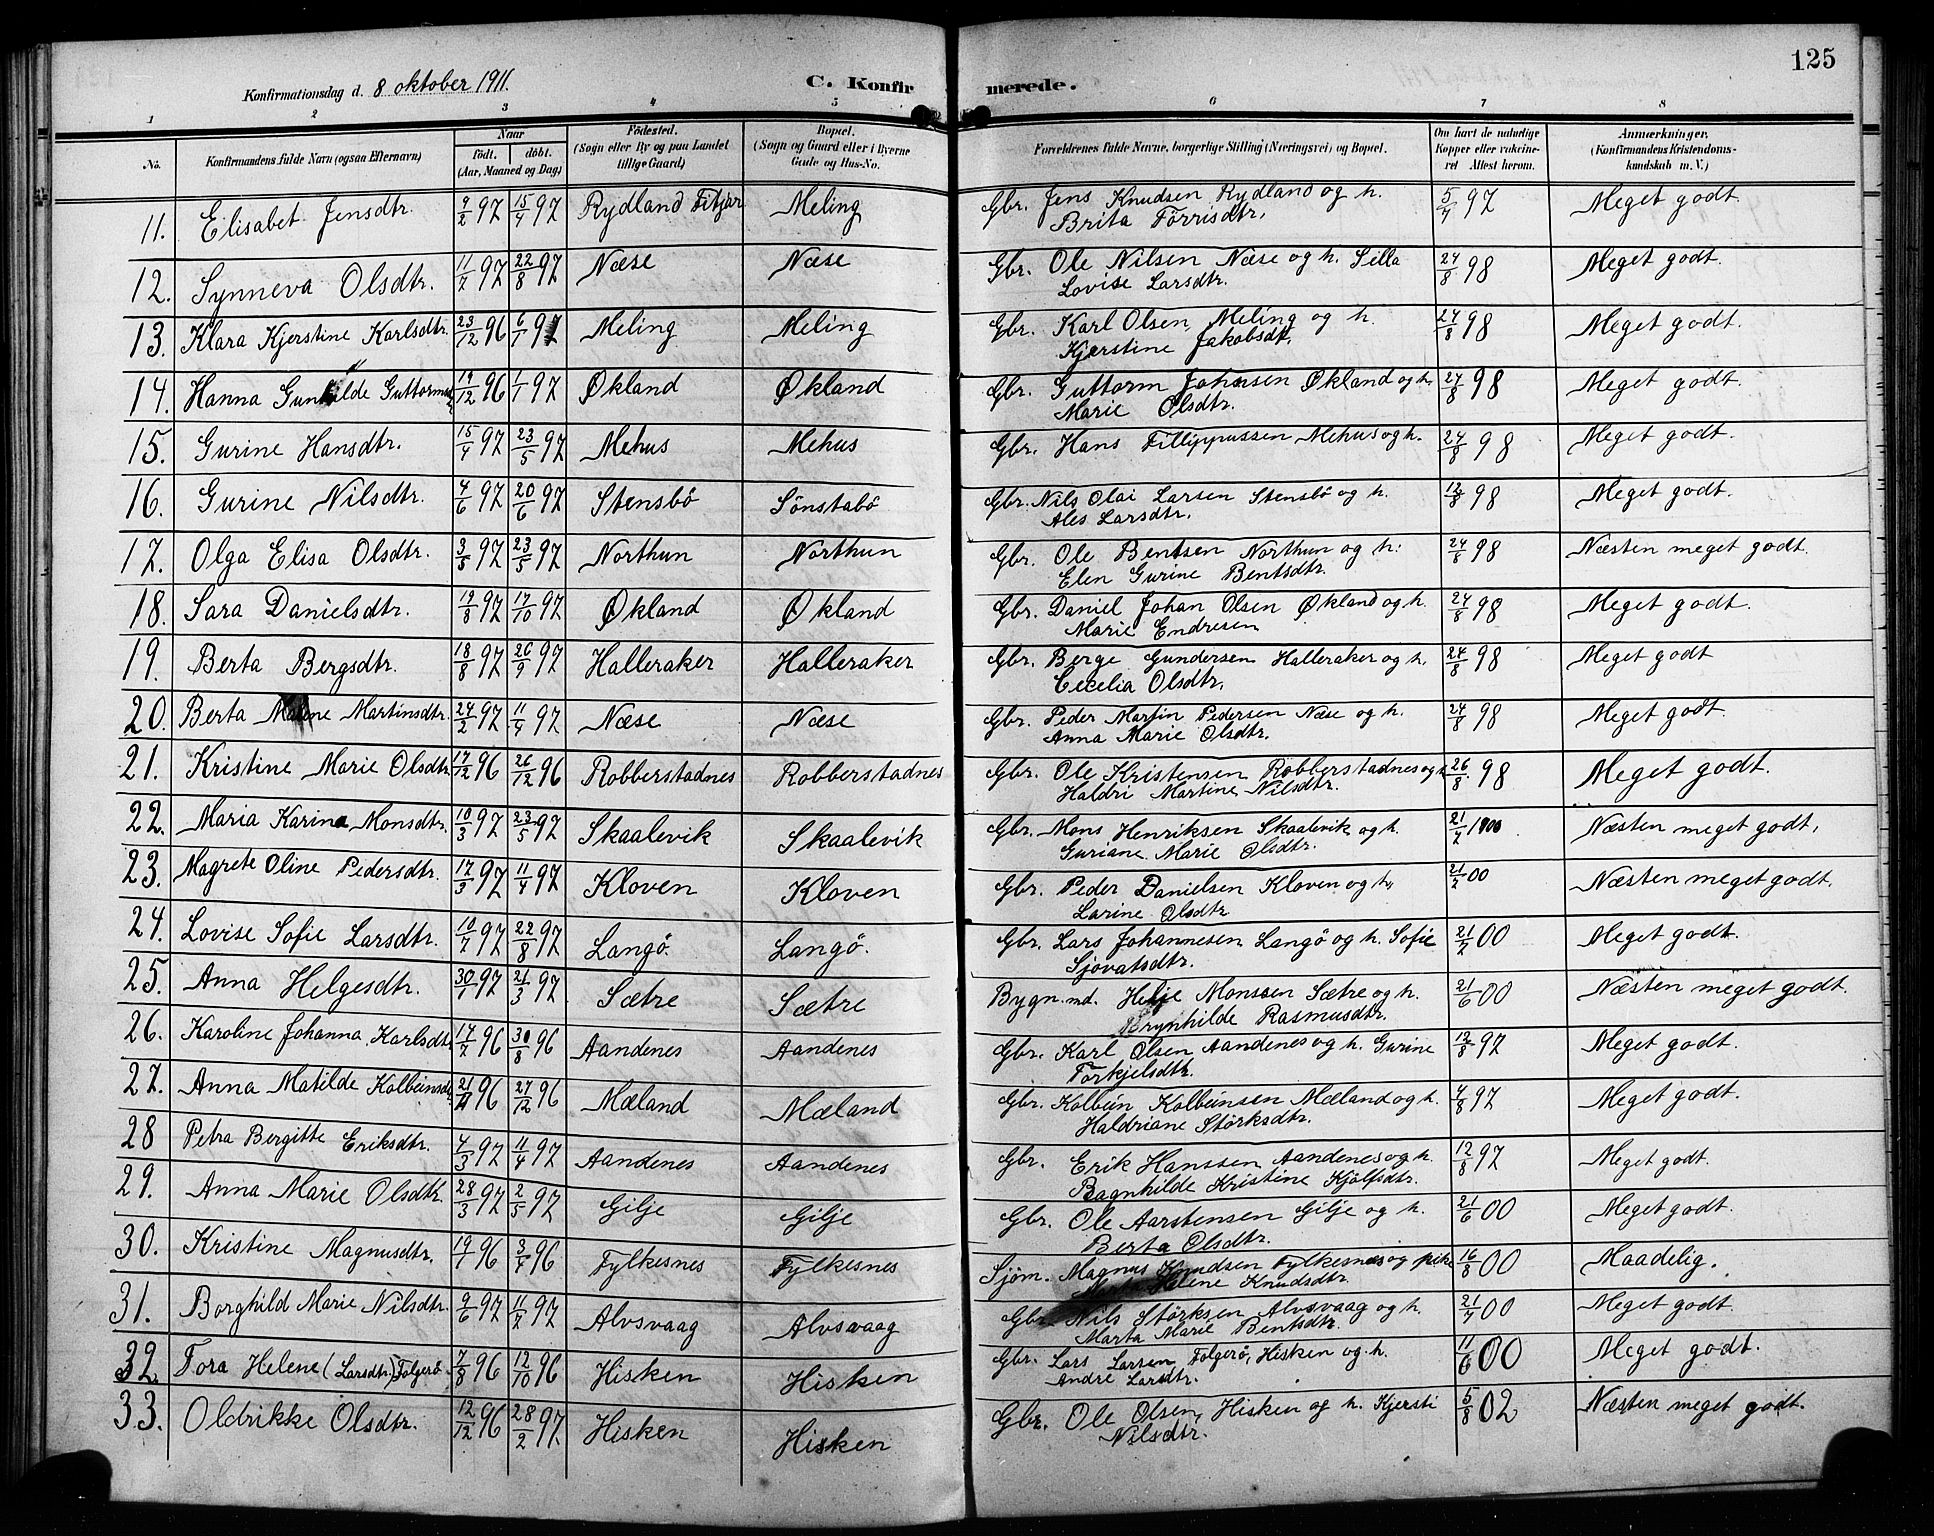 125
Konfirmationsdag d. 8 oktober 1911.
C. Konfirmerede.
1 2 3 4 5 6 7 8
No. Konfirmandens fulde Navn (ogsaa Efternavn) Naar født. døbt. (Aar, Maaned og Dag) Fødested. (Sogn eller By og paa Landet tillige Gaard) Bopæl. (Sogn og Gaard eller i Byerne Gade og Hus-No. Forældrenes fulde Navne, borgerlige Stilling (Næringsvei) og Bopæl. Om havt de naturlige Kopper eller vakcineret Attest herom. Anmærkninger. (Konfirmandens Kristendomskundskab m. V.)
11. Elisabet Jensdtr. 9/2 97 15/4 97 Rydland Fitjar Meling Gbr. Jens Knudsen Rydland og h. 5/7 97 Meget godt.
Brita Tørrisdtr.
12. Synneva Olsdtr. 11/7 97 22/8 97 Næse Næse Gbr. Ole Nilsen Næse og h. Silla 24/8 98 Meget godt.
Lovise Larsdtr.
13. Klara Kjerstine Karlsdtr. 23/12 96 6/1 97 Meling Meling Gbr. Karl Olsen Meling og h. 24/8 98 Meget godt.
Kjerstine Jakobsdt.
14. Hanna Gunhilde Guttormsdtr 19/12 96 1/1 97 Økland Økland Gbr. Guttorm Johnsen Økland og h. 24/8 98 Meget godt.
Marie Olsdtr.
15. Gurine Hansdtr. 15/4 97 23/5 97 Mehus Mehus Gbr. Hans Fillippussen Mehus og h. 24/8 98 Meget godt.
16. Gurine Nilsdtr. 4/6 97 20/6 97 Stensbö Sönstabö Gbr. Nils Olai Larsen Stensbö og h. 12/8 98 Meget godt.
Ales Larsdtr.
17. Olga Elisa Olsdtr. 3/5 97 23/5 97 Northun Northun Gbr. Ole Bentsen Northun og h: 24/8 98 Næsten meget godt.
Elen Gurine Bentsdtr.
18. Sara Danielsdtr. 19/8 97 17/10 97 Økland Økland Gbr. Daniel Johan Olsen Økland og h. 24/8 98 Meget godt.
Marie Endresen
19. Berta Bergsdtr. 18/8 97 26/9 97 Halleraker Halleraker Gbr. Berge Gundersen Halleraker og h. 24/8 98 Meget godt
Cecelia Olsdtr.
20. Berta Malene Martinsdtr. 24/2 97 11/4 97 Næse Næse Gbr. Peder Martin Pedersen Næse og h. 24/8 98 Meget godt.
Anna Marie Olsdtr.
21. Kristine Marie Olsdtr 17/12 96 26/12 96 Robberstadnes Robberstadnes Gbr. Ole Kristensen Robberstadnes og h 26/8 98 Meget godt.
Haldri Martine Nilsdtr.
22. Maria Karina Monsdtr. 10/3 97 23/5 97 Skaalevik Skaalevik Gbr. Mons Henriksen Skaalevik og h. 21/7 1900. Næsten meget godt.
Guriane Marie Olsdtr.
23. Magrete Oline Pedersdtr. 17/3 97 11/4 97 Kloven Kloven Gbr. Peder Danielsen Kloven og h, 21/7 00 Næsten meget godt.
Larine Olsdtr
24. Lovise Sofie Larsdtr. 10/7 97 22/8 97 Langö. Langö. Gbr. Lars Johannesen Langö og h. Sofie 21/7 00 Meget godt.
Sjovatsdtr.
25. Anna Helgesdtr. 30/1 97 21/3 97 Sætre Sætre Bygn.md. Helje Monssen Sætre og h. 21/6 00 Næsten meget godt.
Brynhilde Rasmusdtr.
26. Karoline Johanna Karlsdtr 17/7 96 30/8 96 Aandenes Aandenes Gbr. Karl Olsen Aandenes og h. Gurine 12/8 97 Meget godt.
Torkjelsdtr.
27. Anna Matilde Kolbeinsdtr 21/11 96 27/12 96 Mæland Mæland Gbr. Kolbein Kolbeinsen Mæland og h. 4/8 97 Meget godt.
Haldriane Störksdtr.
28 Petra Bergitte Eriksdtr. 4/3 97 11/4 97 Aandenes Aandenes Gbr. Erik Hanssen Aandenes og h. 12/8 97 Meget godt.
Bagnhilde Kristine Kjölfsdtr.
29. Anna Marie Olsdtr. 28/3 97 2/5 97 Gilje Gilje Gbr. Ole Aarstensen Gilje og h. 21/6 00 Meget godt.
Berta Olsdtr.
30. Kristine Magnusdtr. 19/1 96 3/4 96 Fylkesnes Fylkesnes Sjöm. Magnus Knudsen Fylkesnes og pike 16/8 00 Maadelig.
Helene Knudsdtr.
31. Borghild Marie Nilsdtr. 9/6 97 11/7 97 Alvsvaag Alvsvaag Gbr. Nils Störksen Alvsvaag og h. 21/7 00 Meget godt.
Marta Marie Bentsdtr.
32. Tora Helene (Larsdtr.) Folgerö 7/8 96 12/10 96 Hisken Hisken Gbr. Lars Larsen Folgerö, Hisken og h. 11/6 00 Meget godt.
Andre Larsdtr.
33. Oldrikke Olsdtr. 12/12 96 28/2 97. Hisken Hisken Gbr. Ole Olsen, Hisken og h. Kjersti 5/8 02 Næsten meget godt.
Nilsdtr.